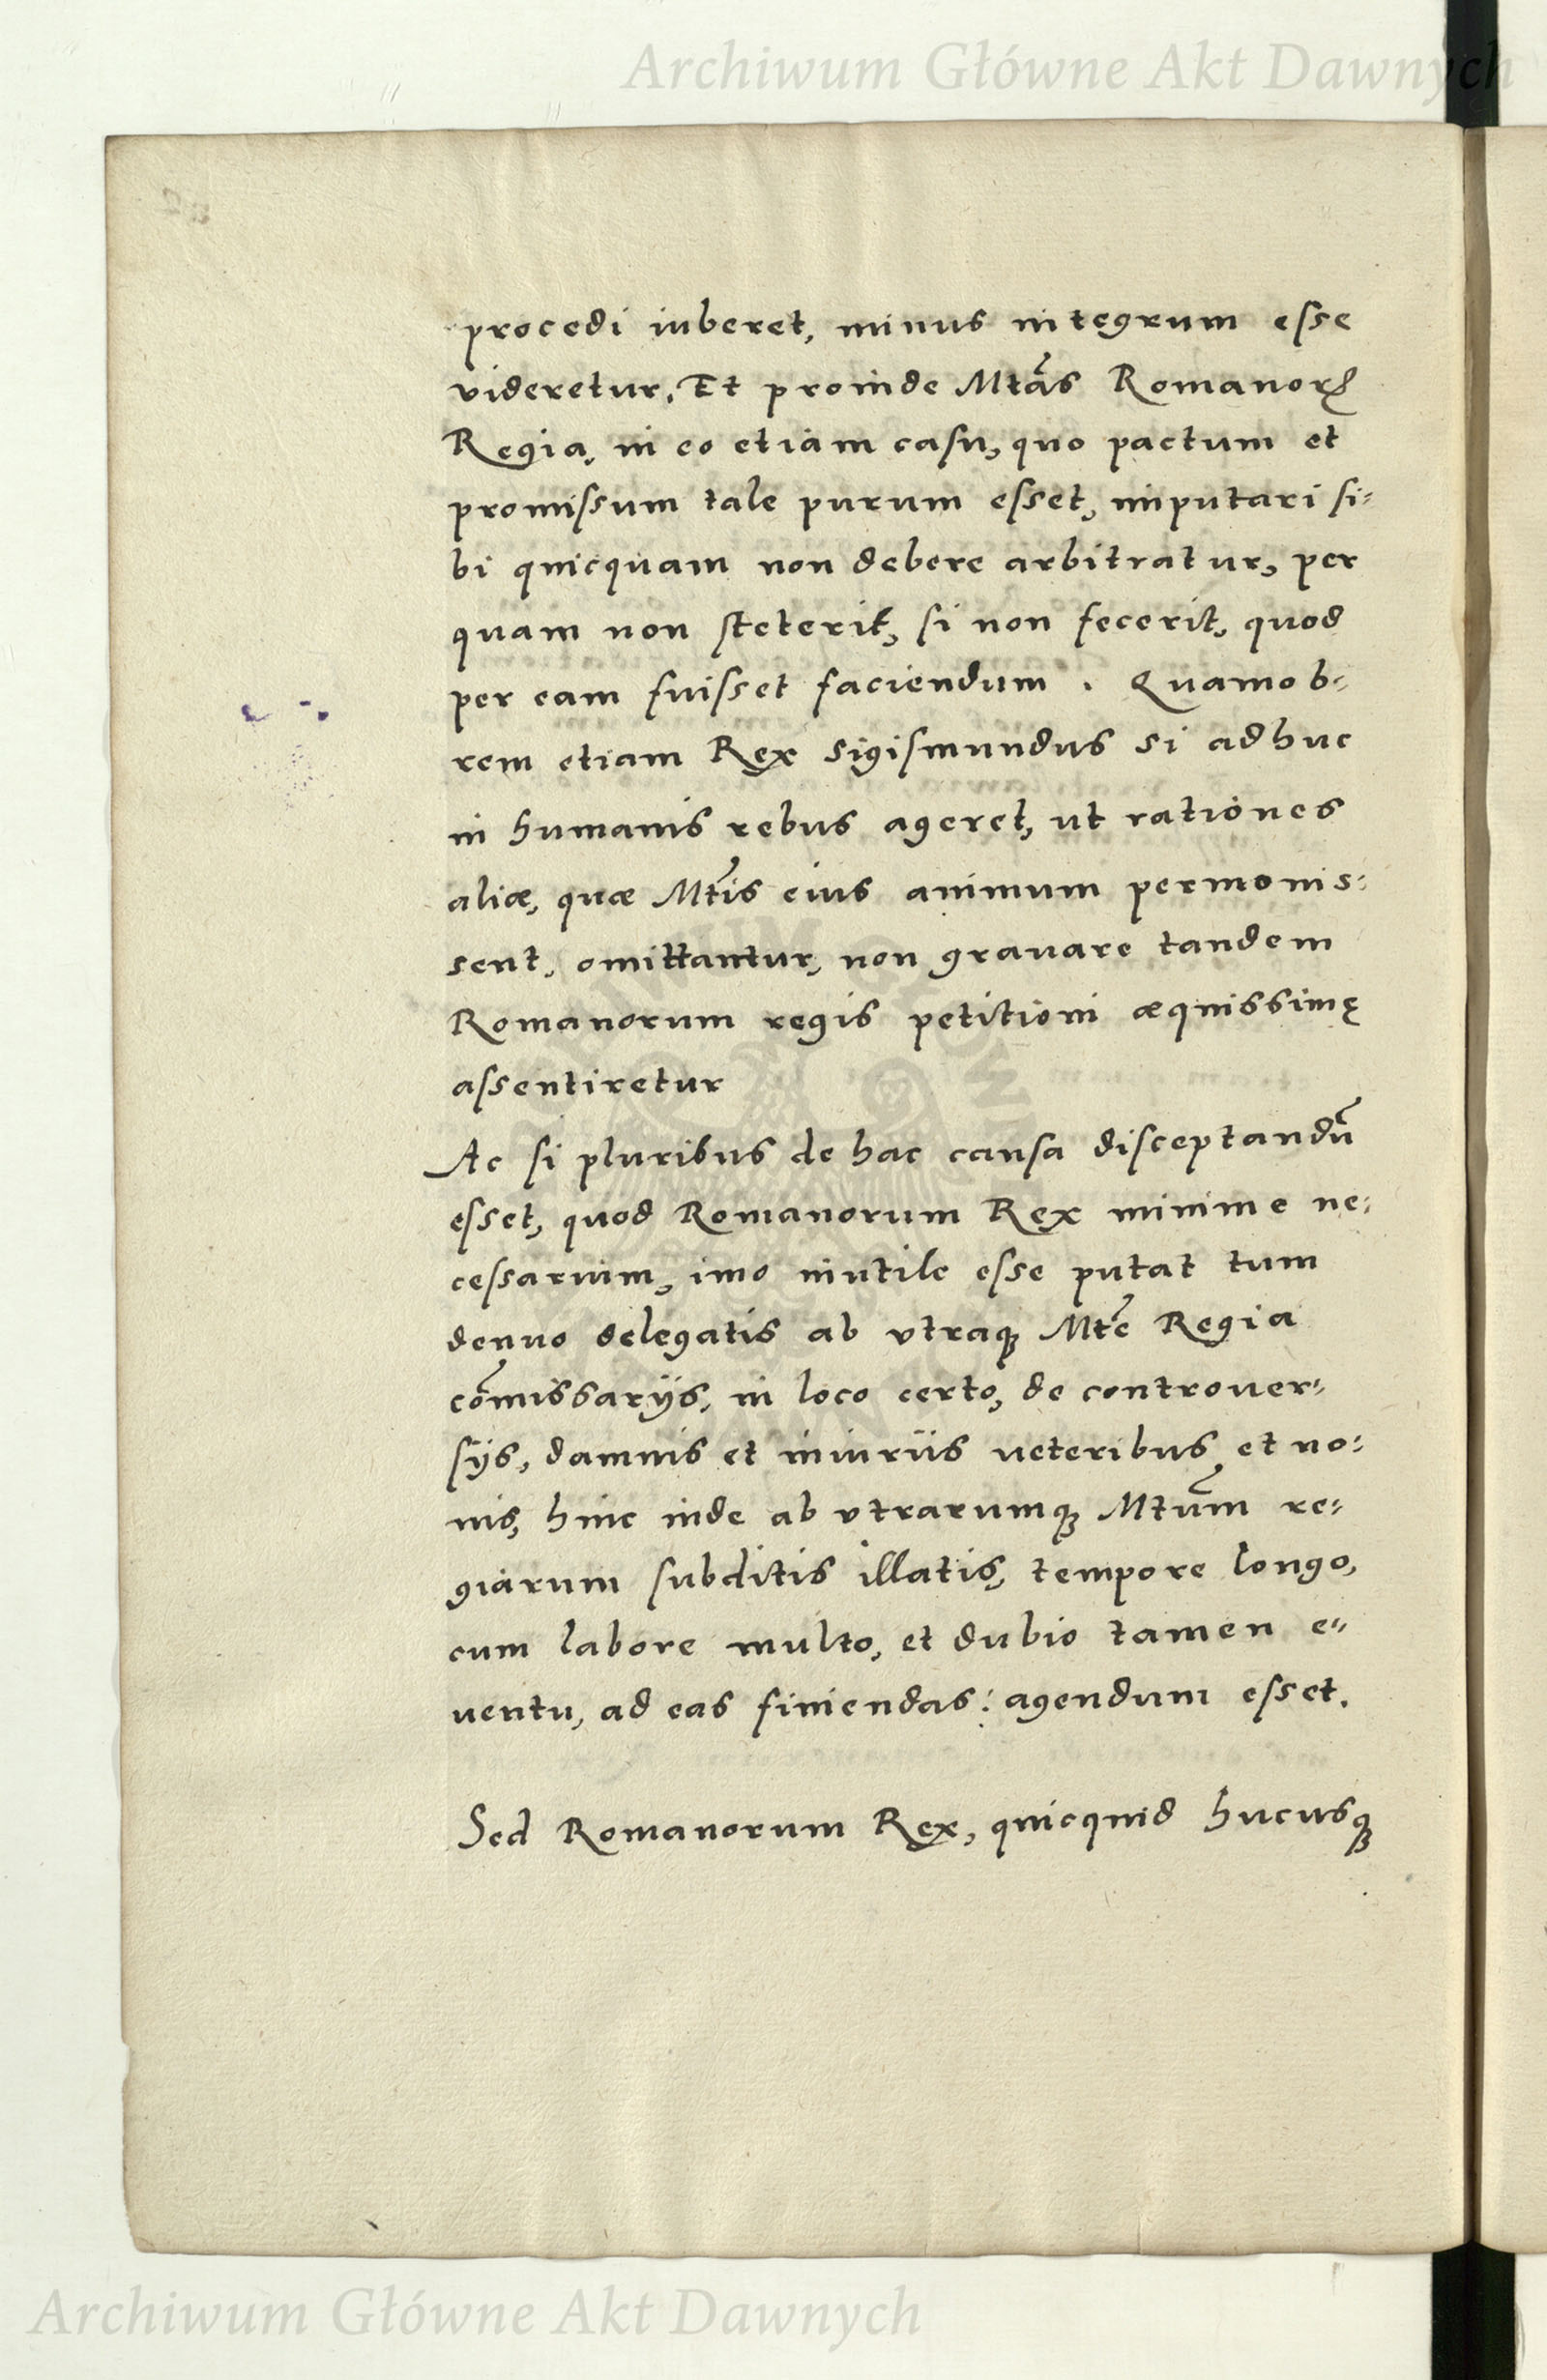 Archiwum Główne Akt Dawnych
procedi iuberet, minus integrum esse
videretur. Et proinde Mtãs Romanorꝝ
Regia, in eo etiam casu, quo pactum et
promissum tale purum esset, imputari si=
bi quicquam non debere arbitratur, per
quam non steterit, si non fecerit, quod
per eam fuisset faciendum. Quamob=
rem etiam Rex Sigismundus si adhuc
in humanis rebus ageret, ut rationes
aliæ, quæ Mtĩs eius animum permouis=
sent, omittantur, non grauare tandem
Romanorum regis petitioni æquissimę
assentiretur
Ac si pluribus de hac causa disceptandũ
esset, quod Romanorum Rex minime ne=
cessarium, imo inutile esse putat tum
denuo delegatis ab vtraqꝫ Mtẽ Regia
cõmissarijs, in loco certo, de controuer=
sijs, damnis et iniuriis ueteribus et no=
uis, hinc inde ab vtrarumqꝫ Mtũm re=
giarum subditis illatis, tempore longo,
cum labore multo, et dubio tamen e=
uentu, ad eas finiendas: agendum esset.
Sed Romanorum Rex, quicquid hucusqꝫ
Archiwum Główne Akt Dawnych